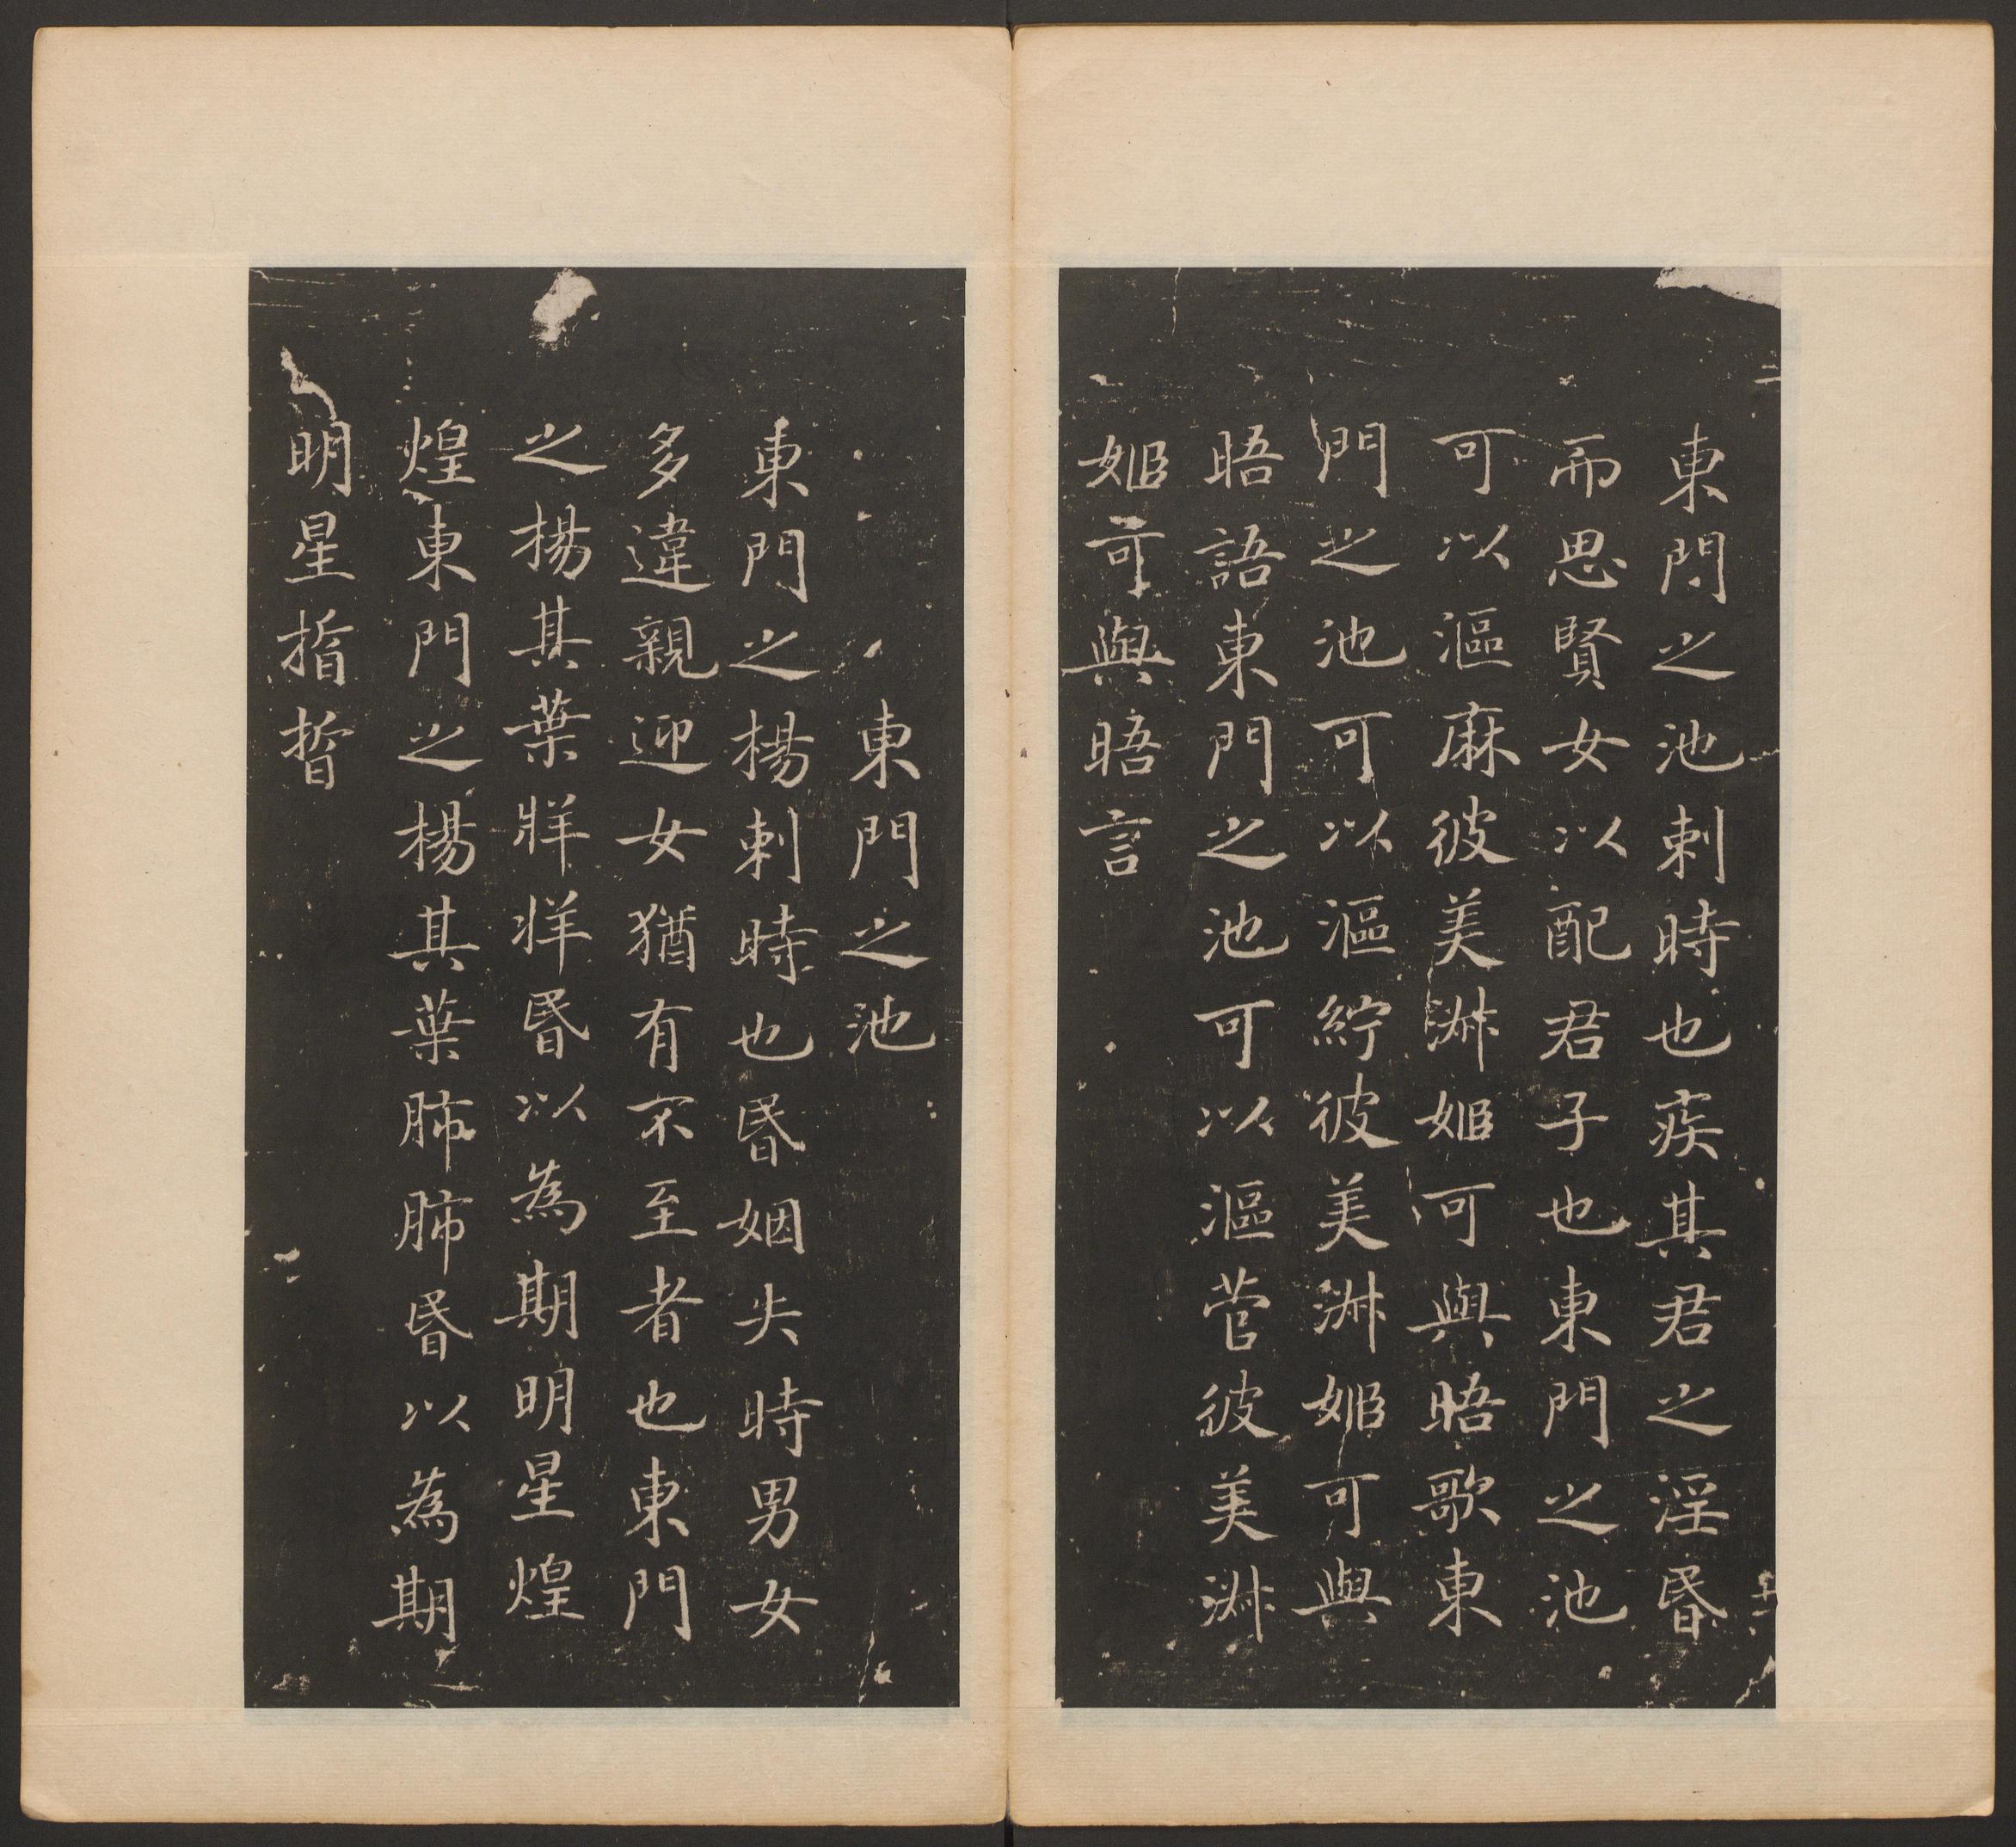 東門之池刺時也疾其君之淫昬
而思賢女以配君子也東門之池
可以漚麻彼美淋姬可與晤歌東
門之池可以漚紵彼美淋姬可與
晤語東門之池可以漚菅彼美淋
姬可與晤言
東門之池
東門之楊刺時也昬姻失時男女
多違親迎女猶有不至者也東門
之楊其葉牂牂昬以為期明星煌
煌東門之楊其葉肺肺昬以為期
明星晢晢